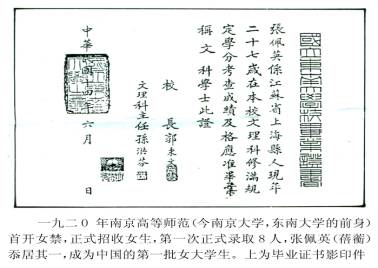 國立東南大學畢業證書
張佩英係江蘇省上海縣人現年
二十七歲在本校文理科修滿規
定學分考查成績及格應准畢業
稱文科學士此證
校長郭秉文
文理科主任孫洪芬
中華民國十四年六月日
一九二0年南京高等师范(今南京大学,东南大学的前身)
首开女禁,正式招收女生,第一次正式录取8人,张佩英(蓓蘅)
忝居其一,成为中国的第一批女大学生。上为毕业证书影印件